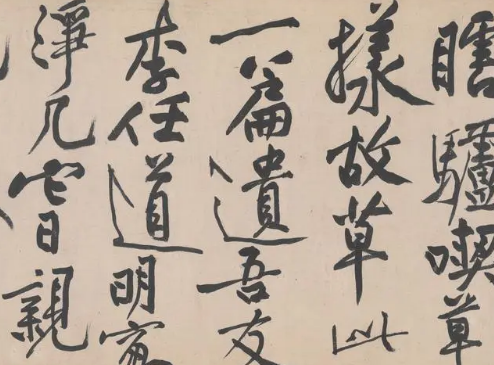 瞎驢喫草
樣故草此
一篇遺吾友
李任道明窗
淨几它日親